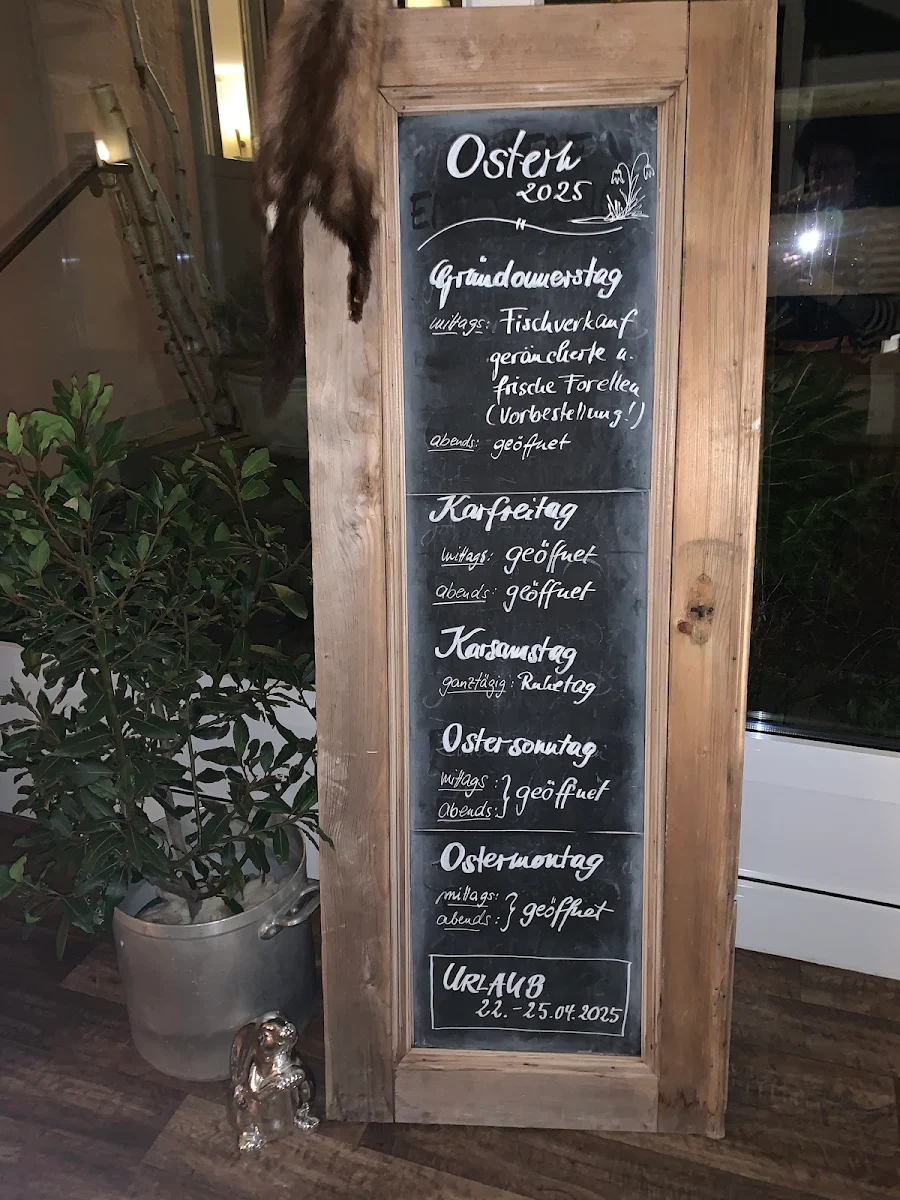 Ostern
2025
Gründonnerstag
mittags: Fischverkauf
geräucherte u.
frische Forellen
(Vorbestellung!)
abends: geöffnet
Karfreitag
mittags: geöffnet
abends: geöffnet
Karsamstag
ganztägig: Ruhetag
Ostersonntag
mittags:
abends: } geöffnet
Ostermontag
mittags:
abends: } geöffnet
URLAUB
22.-25.04.2025